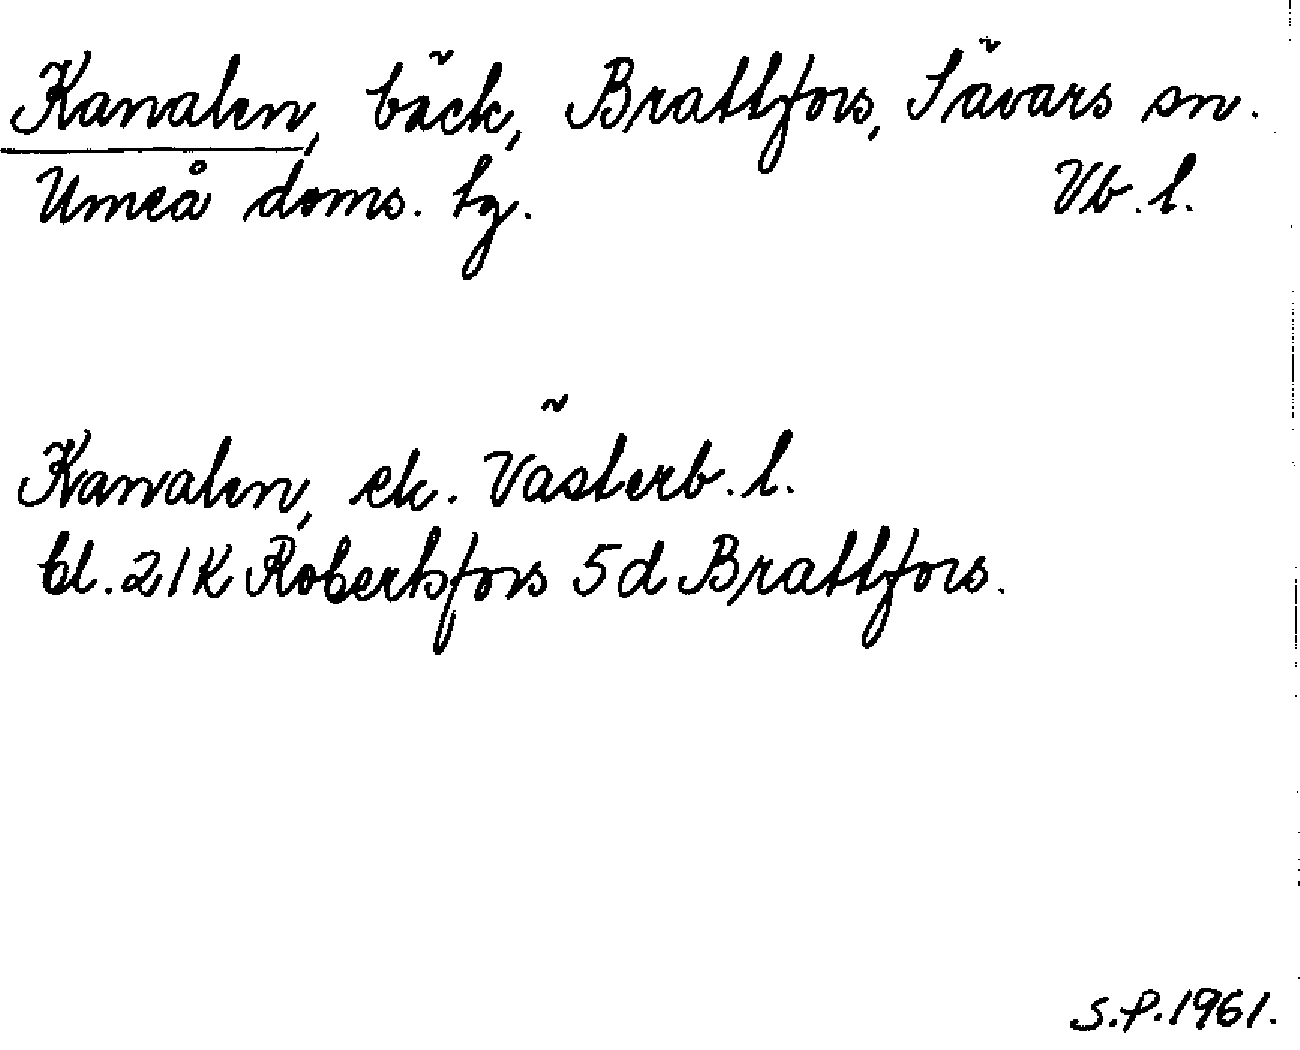 Kanalen, bäck, Brattfors, Sävars sn.
Umeå doms. tg. Vb. l.
Kanalen, ek. Västerb. l.
bl. 21K Robertsfors 5d Brattfors.
S.P. 1961.